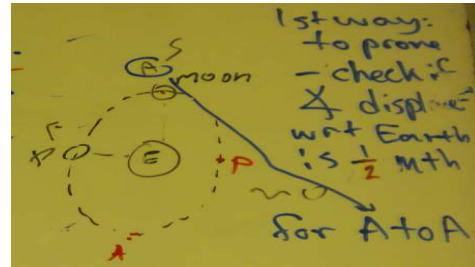 1st way:
to prove
- check if
∡ displmet
wrt Earth
is 1/2 mth
for A to A
S
A
moon
F
P
E
P
A